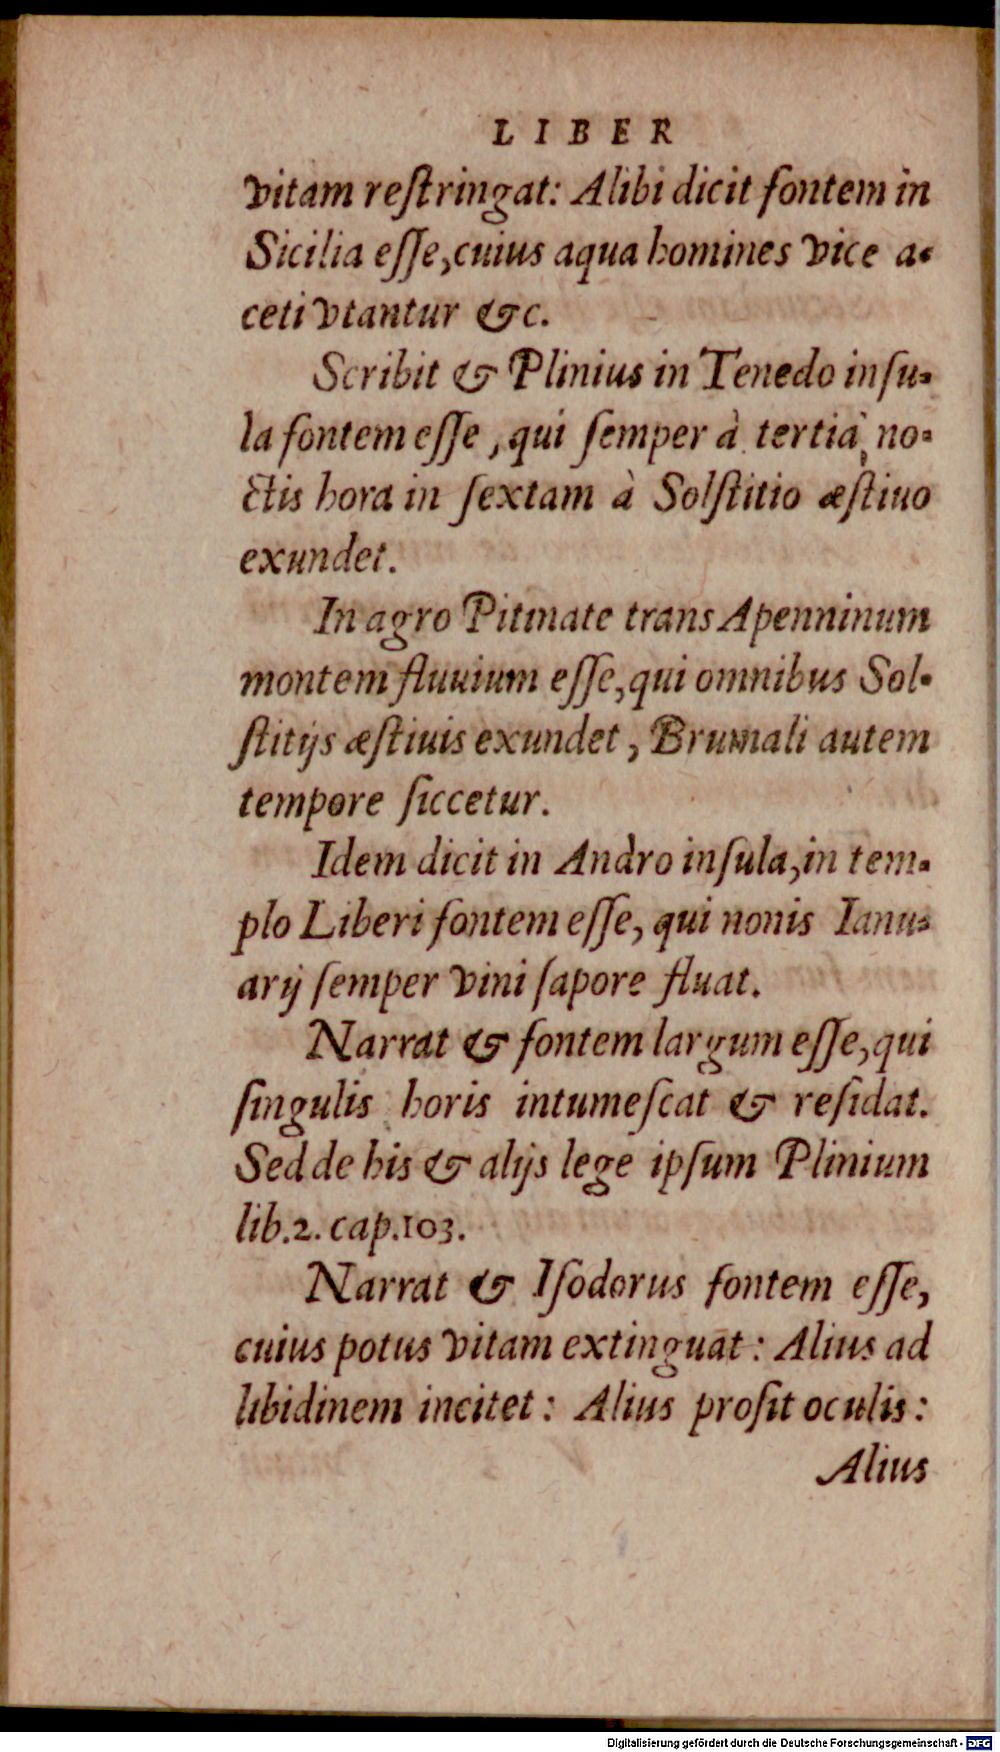 LIBER
vitam reſtringat: Alibi dicit fontem in
Sicilia eſſe, cuius aqua homines vice a-
ceti vtantur &c.
Scribit & Plinius in Tenedo inſu-
la fontem eſſe, qui ſemper à tertia, no-
ctis hora in ſextam à Solſtitio æſtiuo
exundet.
In agro Pitinate trans Apenninum
montem fluuium eſſe, qui omnibus Sol-
ſtitijs æſtiuis exundet, Brumali autem
tempore ſiccetur.
Idem dicit in Andro inſula, in tem-
plo Liberi fontem eſſe, qui nonis Ianu-
arij ſemper vini ſapore fluat.
Narrat & fontem largum eſſe, qui
ſingulis horis intumeſcat & reſidat.
Sed de his & alijs lege ipſum Plinium
lib.2. cap.103.
Narrat & Iſodorus fontem eſſe,
cuius potus vitam extinguat: Alius ad
libidinem incitet: Alius proſit oculis:
Alius
Digitalisierung gefördert durch die Deutsche Forschungsgemeinschaft - DFG